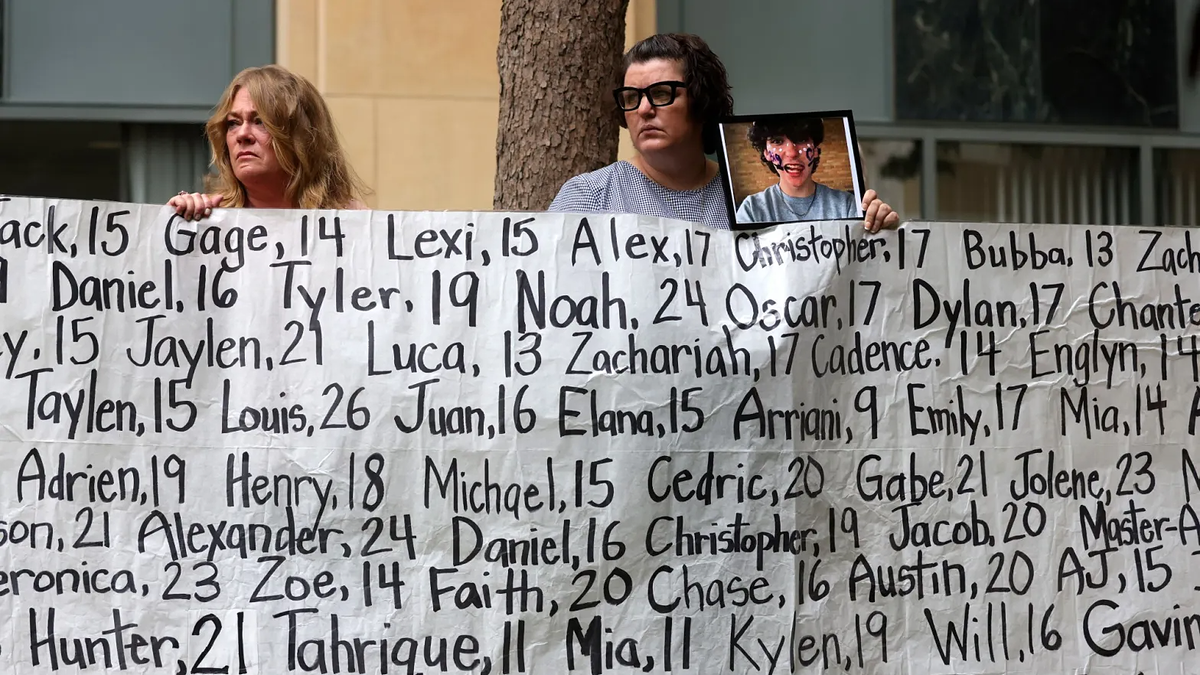 ack, 15 Gage, 14 Lexi, 15 Alex, 17 Christopher, 17 Bubba, 13 Zach
Daniel, 16 Tyler, 19 Noah, 24 Oscar, 17 Dylan, 17 Chante
y, 15 Jaylen, 21 Luca, 13 Zachariah, 17 Cadence, 14 Englyn, 14
Taylen, 15 Louis, 26 Juan, 16 Elana, 15 Arriani, 9 Emily, 17 Mia, 14
Adrien, 19 Henry, 18 Michael, 15 Cedric, 20 Gabe, 21 Jolene, 23
son, 21 Alexander, 24 Daniel, 16 Christopher, 19 Jacob, 20 Master-A
eronica, 23 Zoe, 14 Faith, 20 Chase, 16 Austin, 20 AJ, 15
Hunter, 21 Tahrique, 11 Mia, 11 Kylen, 19 Will, 16 Gavin